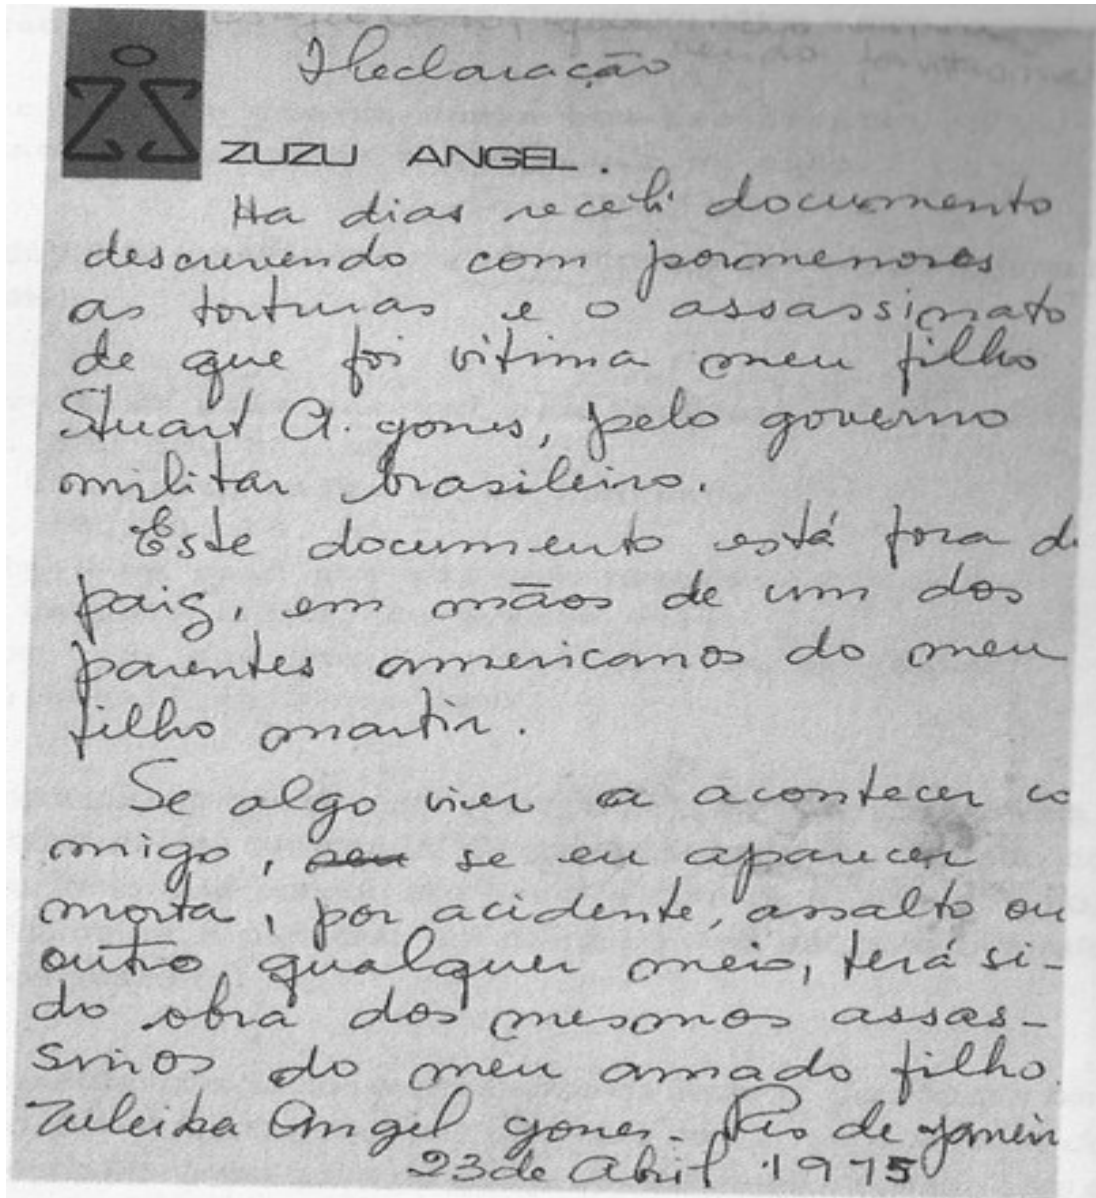 Declaração
ZUZU ANGEL.
Ha dias recebi documento
descrevendo com pormenores
as torturas e o assassinato
de que foi vitima meu filho
Stuart A. Jones, pelo governo
militar brasileiro.
Este documento está fora d
paiz, em mãos de um dos
parentes americanos do meu
filho martir.
Se algo vier a acontecer co
migo, se eu aparecer
morta, por acidente, assalto ou
outro qualquer meio, terá si-
do obra dos mesmos assas-
sinos do meu amado filho.
Zuleika Angel Jones. Rio de Janeir
23 de Abril 1975